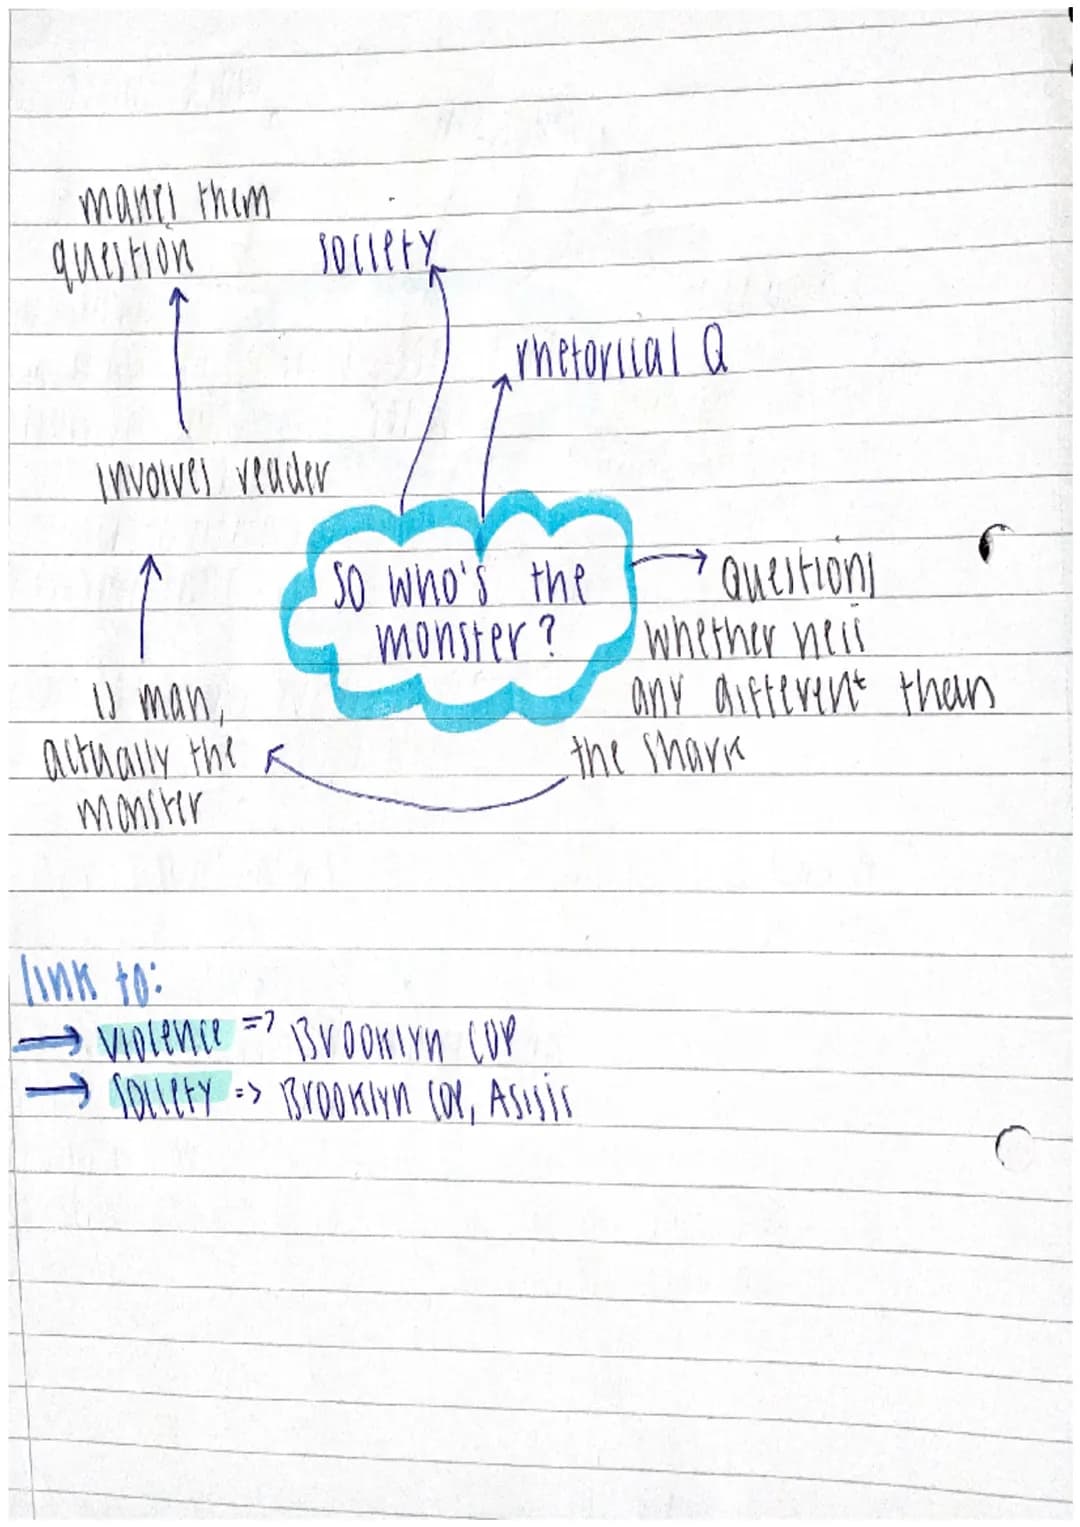 makes them
question
society
rhetorical Q
involves reader
so who's the
monster?
Questions
whether he is
any different than
the shark
is man,
actually the
monster
link to:
→ violence => Brooklyn Cop
→ Society => Brooklyn Cop, Asisis